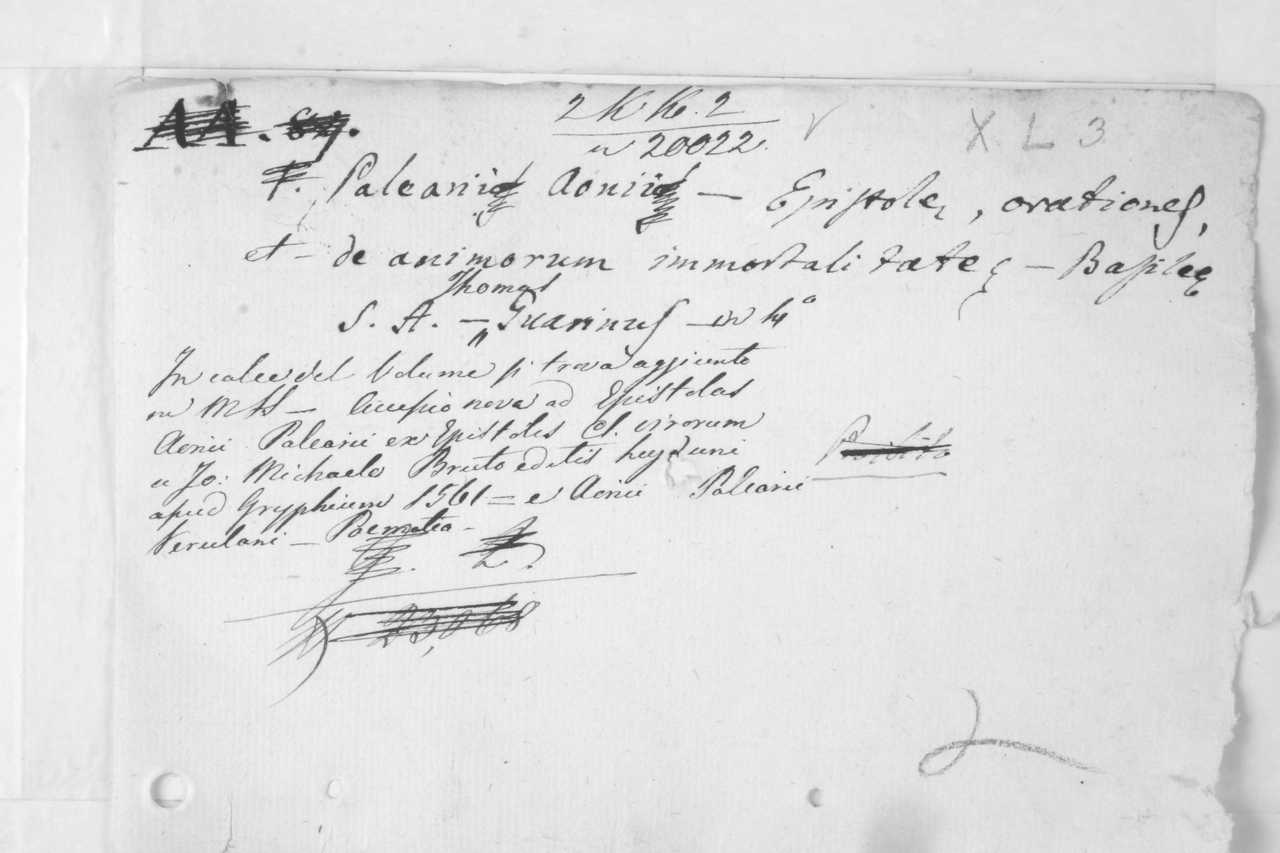 AA. 89.
2 K K. 2
n 20022.
X L 3
Palearii Aonii — Epistole, orationes,
et de animorum immortalitate — Basileę
Thomas
S. A. — Guarinus — in 4º
In calce del Volume si trova aggiunto
in MSS — Accessio nova ad Epistolas
Aonii Palearii ex Epistolis Cl. virorum
a Jo: Michaele Bruto editis Lugduni
apud Gryphium 1561 = e Aonii Palearii
Verulani —
Proibito
23,068